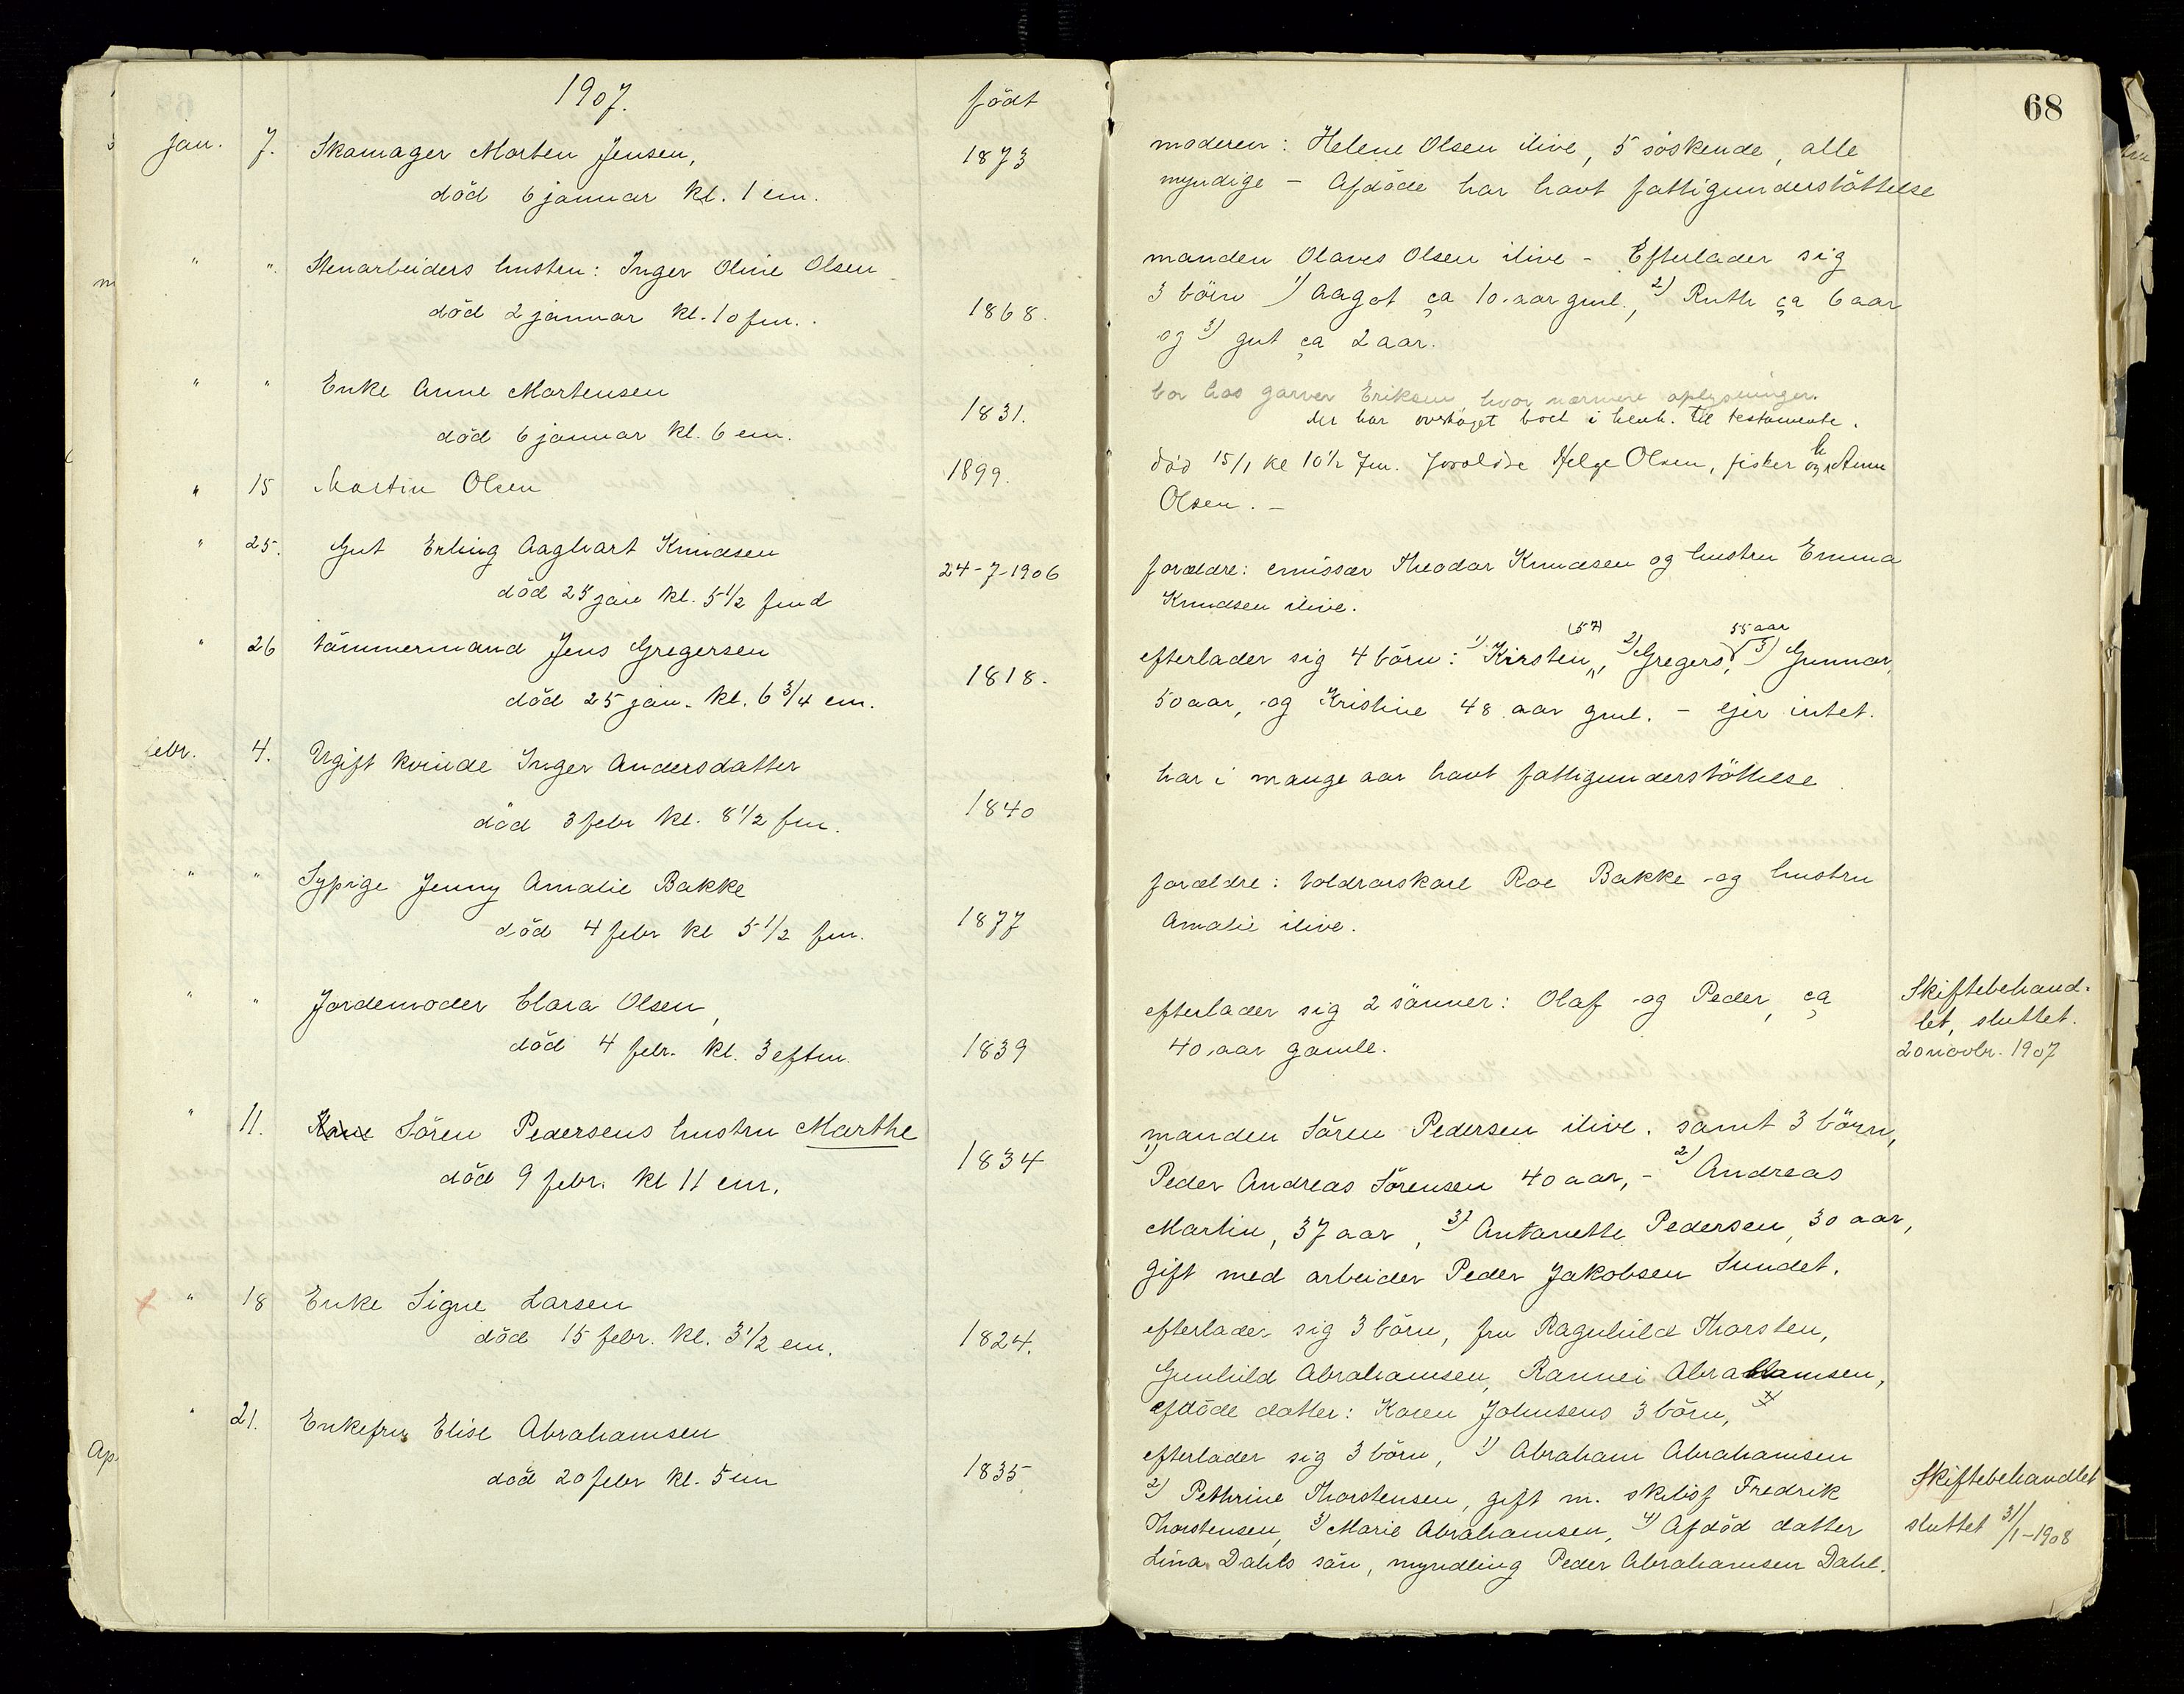 1907.
født
jan. 7. Skomager Morten Jensen, 1873
död 6 januar kl. 1 em.
" ". Stenarbeiders hustru: Inger Oline Olsen
död 2 januar kl. 10 fm. 1868.
" " Enke Anne Mortensen
död 6 januar kl. 6 em. 1831.
" 15 Martin Olsen 1899.
" 25. Gut Erling Aaghart Knudsen
död 25 jan kl. 5 1/2 fmd 24-7-1906
" 26 tömmermand Jens Gregersen
död 25 jan. kl. 6 3/4 em. 1818.
febr. 4. Ugift kvinde Inger Andersdatter
död 3 febr kl. 8 1/2 fm. 1840
" " Sypige Jenny Amalie Bakke
död 4 febr kl 5 1/2 fm. 1877
" " Jordemoder Clara Olsen,
död 4 febr. kl. 3 eftm. 1839
" 11. Kone Sören Pedersens hustru Marthe
död 9 febr. kl 11 em. 1834
" 18 Enke Signe Larsen
död 15 febr. kl. 3 1/2 em. 1824.
" 21. Enkefru Elise Abrahamsen
död 20 febr kl. 5 em 1835.
Ap.
68
moderen: Helene Olsen ilive, 5 söskende, alle
myndige - Afdöde har havt fattigunderstöttelse
manden Olaves Olsen ilive - Efterlader sig
3 börn 1) Aagot ca 10 aar gml., 2) Ruth ca 6 aar
og 3) gut ca 2 aar.
bor hos garver Eriksen hvor nærmere oplysninger.
der har overtaget boet i henh. til testamente.
död 15/1 kl 10 1/2 fm. Forældre Helge Olsen, fisker og h Anna
Olsen. -
forældre: emissær Theodor Knudsen og hustru Emma
Knudsen ilive.
efterlader sig 4 börn: 1) Kirsten (57), 2) Gregers 55 aar, 3) Gunnar,
50 aar, og Kristine 48 aar gml. - ejer intet.
har i mange aar havt fattigunderstöttelse
forældre: toldrorskarl Roe Bakke og hustru
Amalie ilive.
efterlader sig 2 sönner: Olaf og Peder, ca
40 aar gamle.
Skiftebehand-
let, sluttet.
20 novbr. 1907
manden Sören Pedersen ilive. samt 3 börn,
1) Peder Andreas Sörensen 40 aar, - 2) Andreas
Martin, 37 aar, 3) Antonette Pedersen, 30 aar,
gift med arbeider Peder Jakobsen Sundet.
efterlader sig 3 börn, fru Ragnhild Thorsten,
Gunhild Abrahamsen, Rannei Abrahamsen,
afdöde datter: Karen Johnsens 3 börn,
efterlader sig 3 börn, 1) Abraham Abrahamsen
2) Pethrine Thorstensen, gift m. skibsf Fredrik
Thorstensen, 3) Marie Abrahamsen, 4) Afdöd datter
Lina Dahls sön, myndling Peder Abrahamsen Dahl.
Skiftebehandlet
sluttet 31/1-1908